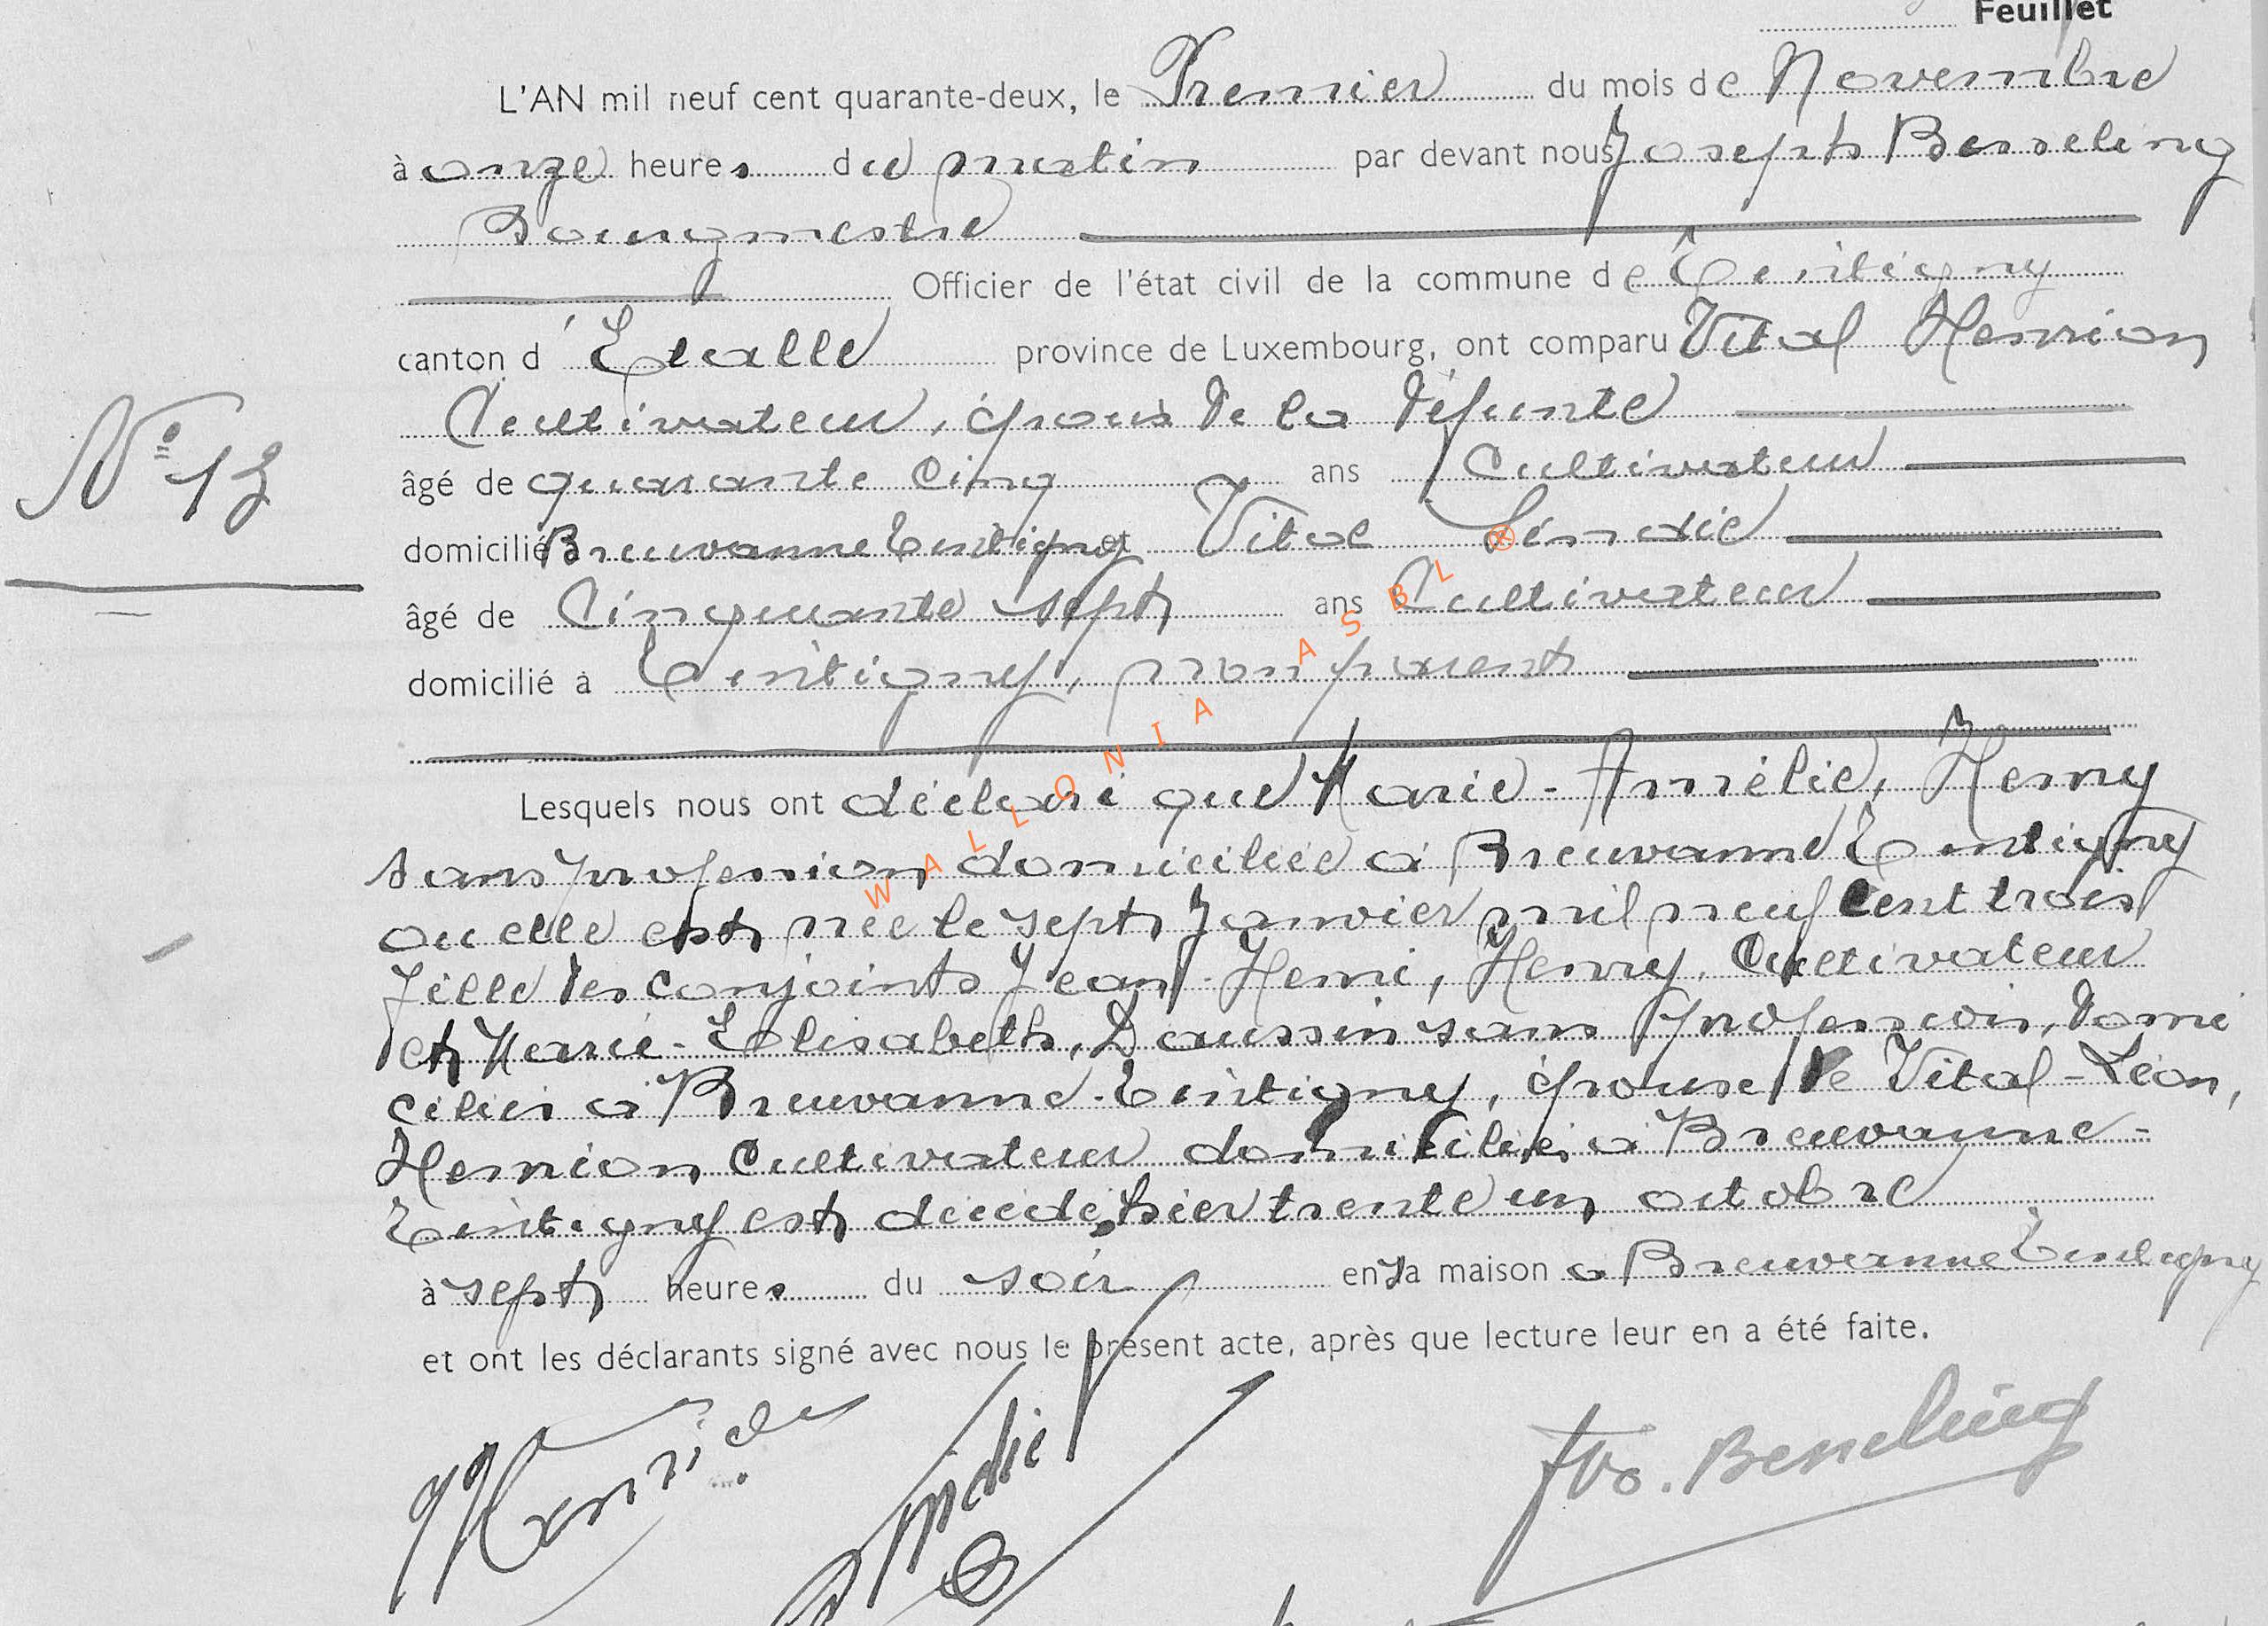 Feuillet
L'AN mil neuf cent quarante-deux, le Premier du mois de Novembre
à onze heures du matin par devant nous Joseph Besseling
Bourgmestre
Officier de l'état civil de la commune de Tintigny
canton d' Etalle province de Luxembourg, ont comparu Vital Henrion
Cultivateur, époux de la défunte
âgé de quarante cinq ans Cultivateur
domicilié à Breuvanne Tintigny et Vital
âgé de Cinquante sept ans Cultivateur
domicilié à Tintigny, non parent
N° 13
Lesquels nous ont déclaré que Marie-Amélie, Henry
sans profession domiciliée à Breuvanne Tintigny
ou elle est née le sept Janvier mil neuf Cent trois
fille des conjoints Jean-Henri, Henry, Cultivateur
et Marie-Elisabeth, Daussin sans profession, domi
ciliés à Breuvanne-Tintigny, épouse de Vital-Léon,
Henrion Cultivateur domicilié à Breuvanne-
Tintigny est décédé hier trente un octobre
à sept heures du soir en sa maison à Breuvanne Tintigny
et ont les déclarants signé avec nous le présent acte, après que lecture leur en a été faite.
Jos. Besseling
WALLONIA ASBL ®